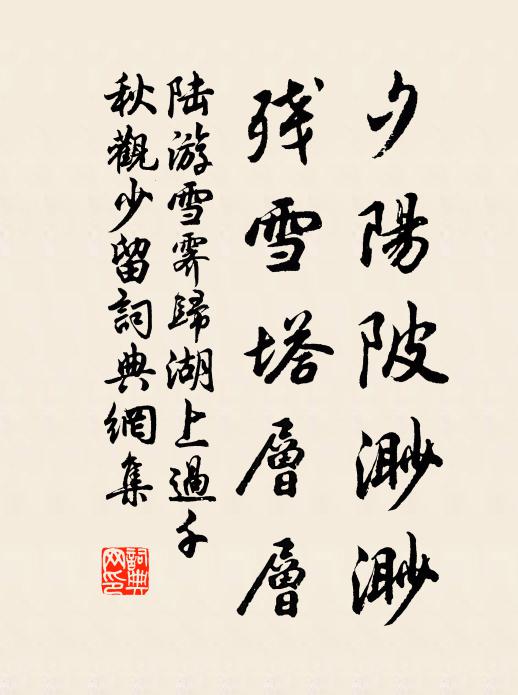 夕陽陂渺渺
殘雪塔層層
陆游雪霁歸湖上過千
秋觀少留詞典網集
詞典网印